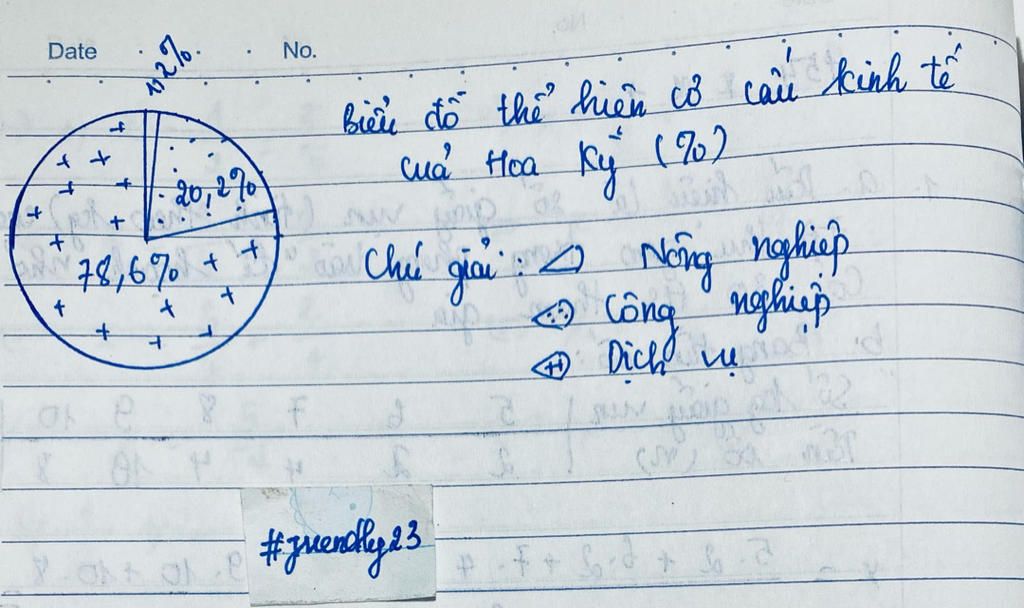 Date No.
1,2%
Biểu đồ thể hiện cơ cấu kinh tế
của Hoa Kỳ (%)
20,2%
78,6%
Chú giải: Nông nghiệp
Công nghiệp
Dịch vụ